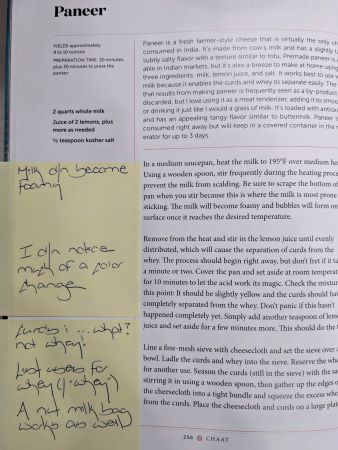 Paneer
YIELDS approximately
8 to 10 ounces
PREPARATION TIME: 30 minutes,
plus 30 minutes to press the
paneer
2 quarts whole milk
Juice of 2 lemons, plus
more as needed
½ teaspoon kosher salt
Paneer is a fresh farmer-style cheese that is virtually the only ch
consumed in India. It's made from cow's milk and has a slightly
subtly salty flavor with a texture similar to tofu. Premade paneer is
able in Indian markets, but it's also a breeze to make at home using
three ingredients: milk, lemon juice, and salt. It works best to use
milk because it enables the curds and whey to separate easily. The
that results from making paneer is frequently seen as a by-produc
discarded, but I love using it as a meat tenderizer, adding it to smoo
or drinking it just like I would a glass of milk. It's loaded with
and has an appealing tangy flavor similar to buttermilk. Paneer
consumed right away but will keep in a covered container in the
erator for up to 3 days.
In a medium saucepan, heat the milk to 195°F over medium he
Using a wooden spoon, stir frequently during the heating proce
prevent the milk from scalding. Be sure to scrape the bottom of
pan when you stir because this is where the milk is most prone
sticking. The milk will become foamy and bubbles will form on
surface once it reaches the desired temperature.
Remove from the heat and stir in the lemon juice until evenly
distributed, which will cause the separation of curds from the
whey. The process should begin right away, but don't fret if it ta
a minute or two. Cover the pan and set aside at room temperat
for 10 minutes to let the acid work its magic. Check the mixtur
this point: It should be slightly yellow and the curds should hav
completely separated from the whey. Don't panic if this hasn't
happened completely yet. Simply add another teaspoon of lem
juice and set aside for a few more minutes. This should do the
Line a fine-mesh sieve with cheesecloth and set the sieve over a
bowl. Ladle the curds and whey into the sieve. Reserve the whe
for another use. Season the curds (still in the sieve) with the sa
stirring it in using a wooden spoon, then gather up the edges of
the cheesecloth into a tight bundle and squeeze the excess whe
from the curds. Place the cheesecloth and curds on a large plat
Milk did become
foamy
I didn notice
much of a color
change
Curds i ... what?
not whey!
Lust uses for
whey (1 whey)
A nut milk bag
works as well
256
CHAAT